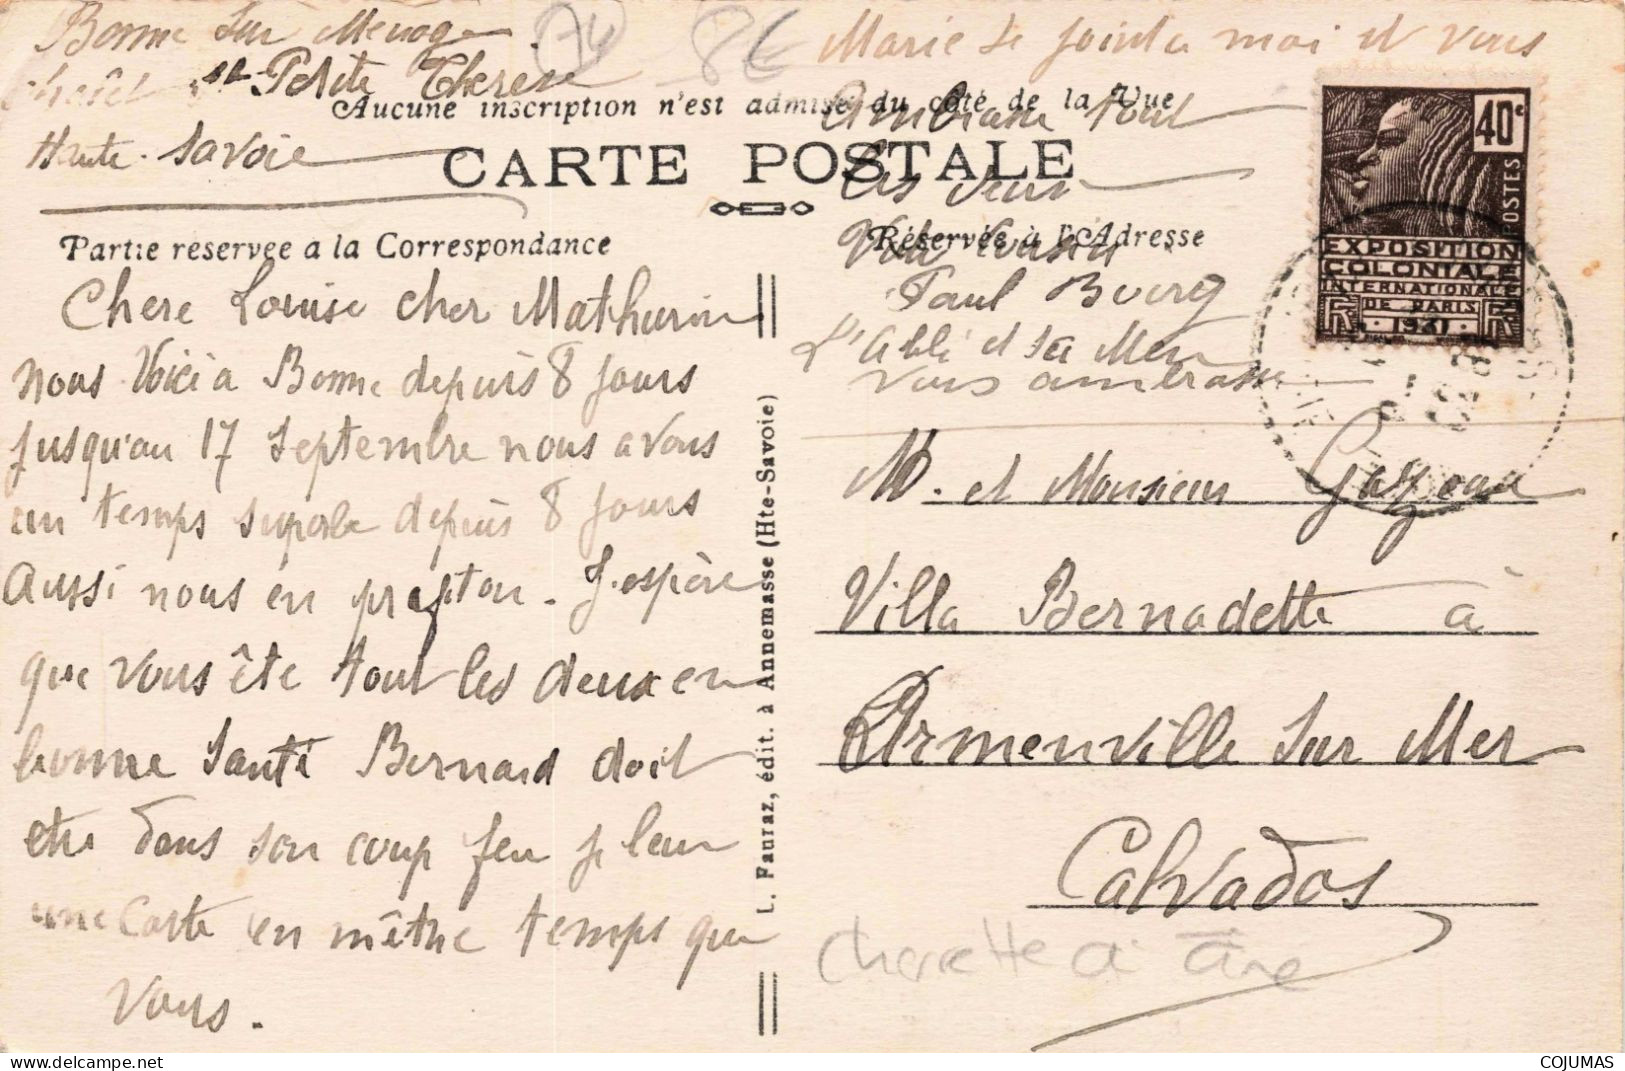 Bonne Sur Menoge
74
8€
Chalet Ste Petite Therese
Haute-Savoie
Aucune inscription n'est admise du côté de la Vue
CARTE POSTALE
Partie réservée a la Correspondance
Réservée à l'Adresse
Chere Louise cher Mathurin
nous Voici a Bonne depuis 8 jours
jusqu'au 17 Septembre nous avons
un temps superbe depuis 8 jours
Aussi nous en profiton. J'espère
que vous ête tout les deux en
bonne Santé Bernard doit
etre dans son coup feu je leur
une Carte en même temps que
vous.
L. Fauraz, édit. à Annemasse (Hte-Savoie)
Marie se joint a moi et vous
Ambrasse tout
les deux
Votre cousin
Paul Bourg
L'Abbé et sa Mere
vous ambrasse
40c
POSTES
EXPOSITION
COLONIALE
INTERNATIONALE
DE PARIS
1931
RF RF
M. et Monsieur Gazeau
Villa Bernadette à
Armenville Sur Mer
Calvados
Charette a âne
COJUMAS